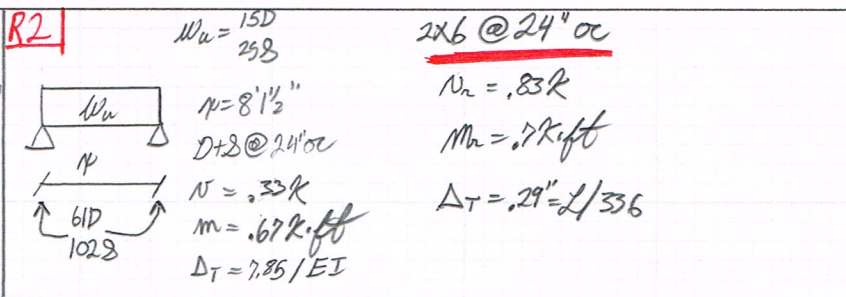 R2
Wu = 15D
25S
Wu
r
61D
102S
r = 8'1½"
D+S @ 24" oc
v = .33K
m = .67K·ft
ΔT = 7.85/EI
2x6 @ 24" oc
Vr = .83K
Mr = .7K·ft
ΔT = .29" = L/336